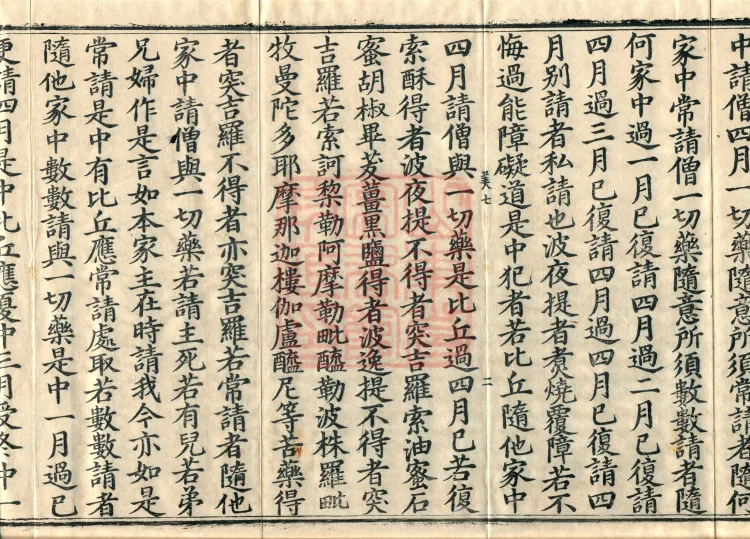 中請僧四月一切藥隨意所須常請者隨何
家中常請僧一切藥隨意所須數數請者隨
何家中過一月已復請四月過二月已復請
四月過三月已復請四月過四月已復請四
月別請者私請也波夜提者煑燒覆障若不
悔過能障礙道是中犯者若比丘隨他家中
四月請僧與一切藥是比丘過四月已若復
索酥得者波夜提不得者突吉羅索油蜜石
蜜胡椒畢茇薑黑鹽得者波逸提不得者突
吉羅若索訶梨勒阿摩勒毗醯勒波株羅毗
牧曼陀多耶摩那迦樓伽盧醯尼等苦藥得
者突吉羅不得者亦突吉羅若常請者隨他
家中請僧與一切藥若請主死若有兒若弟
兄婦作是言如本家主在時請我今亦如是
常請是中有比丘應常請處取若數數請者
隨他家中數數請與一切藥是中一月過已
更請四月是中比丘應夏中三月受冬中一
七
二